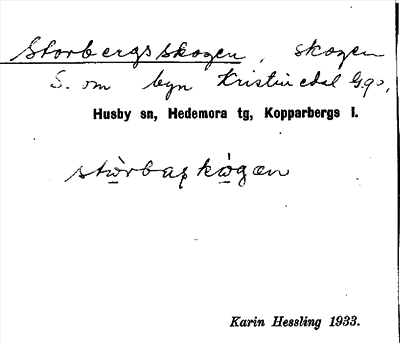 Storbergsskogen, skogen
S. om byn Kristinedal
Husby sn, Hedemora tg, Kopparbergs l.
Karin Hessling 1933.